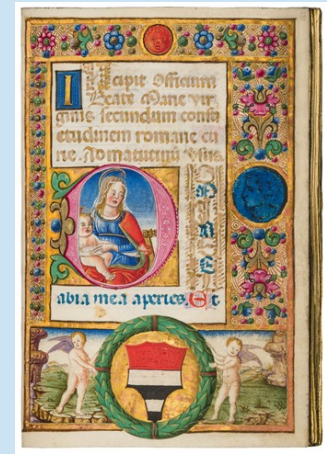 Incipit Officium
Beate Marie vir
ginis secundum consu
etudinem romane cu
rie. Ad matutinū
abia mea aperies. Et